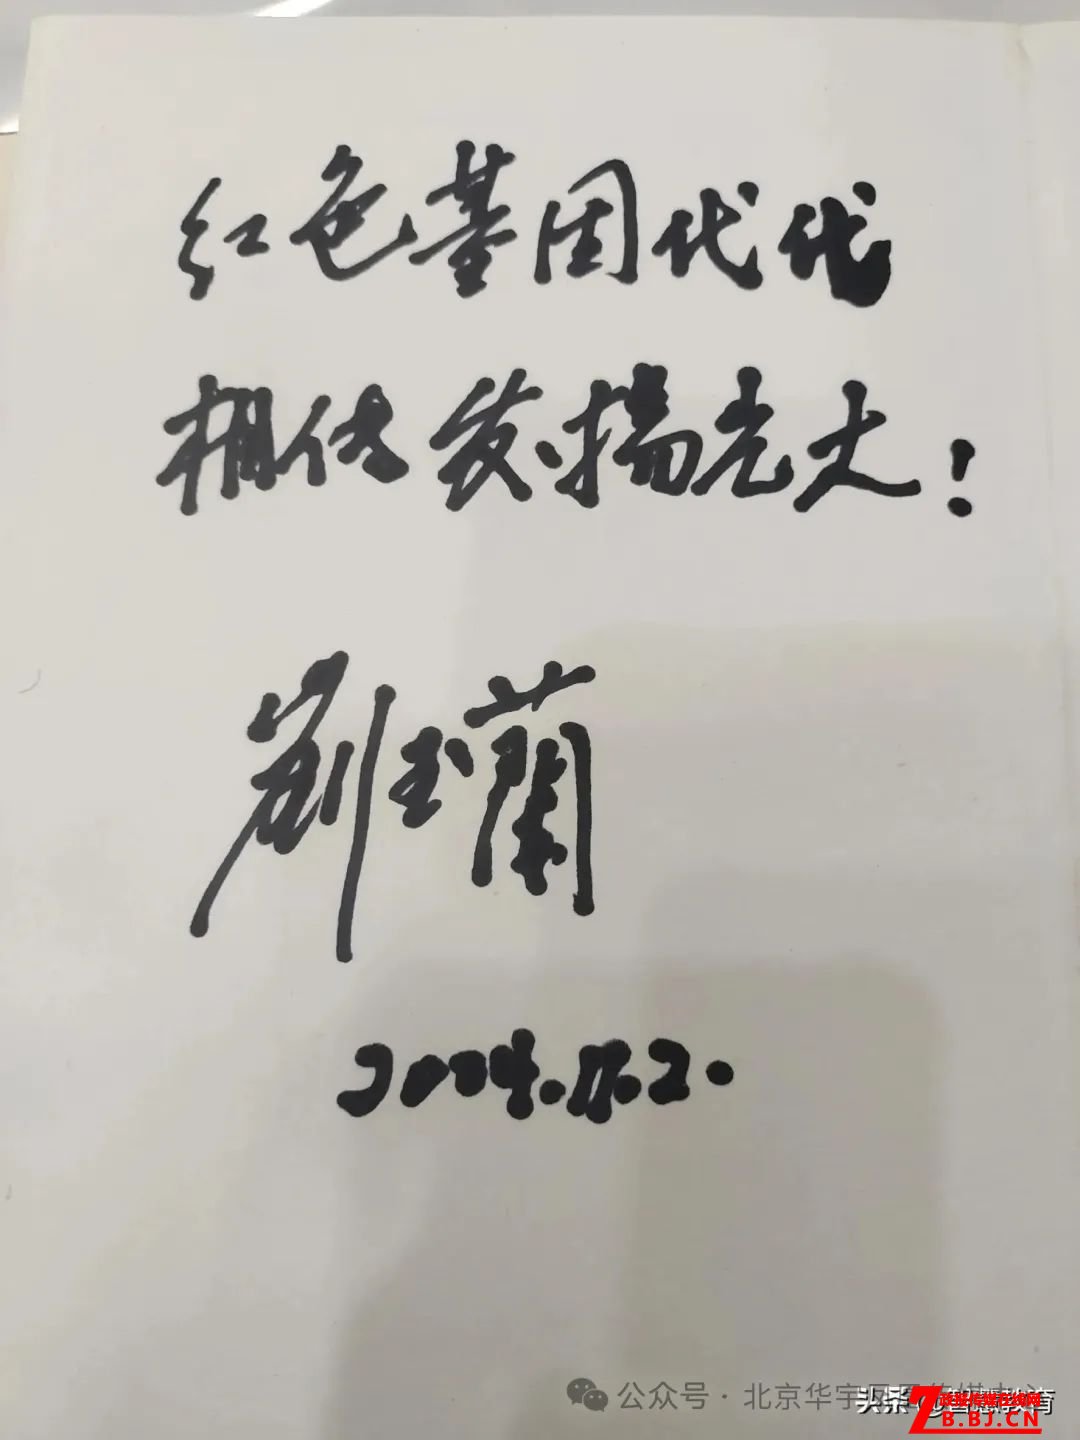 红色基因代代
相传发扬光大！
刘玉蘭
2024.11.2.
公众号·北京华宇
头条
B.BJ.CN